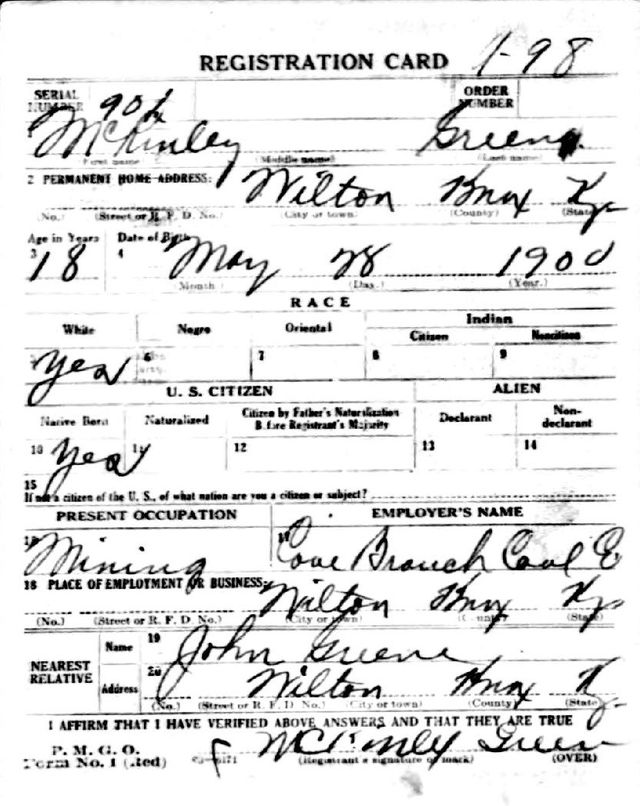 REGISTRATION CARD 1-98
SERIAL NUMBER 90 ORDER NUMBER
McKinley Greene
First name (Middle name) (Last name)
2 PERMANENT HOME ADDRESS: Wilton Knox Ky.
(No.) (Street or R. F. D. No.) (City or town) (County) (State)
Age in Years Date of Birth
3 18 4 May 28 1900
(Month) (Day.) (Year.)
RACE
White Negro Oriental Indian
Citizen Noncitizen
Yes 6 7 8 9
U. S. CITIZEN ALIEN
Native Born Naturalized Citizen by Father's Naturalization Before Registrant's Majority Declarant Non-declarant
10 Yes 11 12 13 14
15
If not a citizen of the U. S., of what nation are you a citizen or subject?
PRESENT OCCUPATION EMPLOYER'S NAME
16 Mining 17 Cove Branch Coal C
18 PLACE OF EMPLOYMENT OR BUSINESS: Wilton Knox Ky.
(No.) (Street or R. F. D. No.) (City or town) (County) (State)
NEAREST RELATIVE Name 19 John Greene
Address 20 Wilton Knox K
(No.) (Street or R. F. D No.) (City or town) (County) (State)
I AFFIRM THAT I HAVE VERIFIED ABOVE ANSWERS AND THAT THEY ARE TRUE
P. M. G. O.
Form No. 1 (Red) McKinley Green
(Registrant's signature or mark) (OVER)